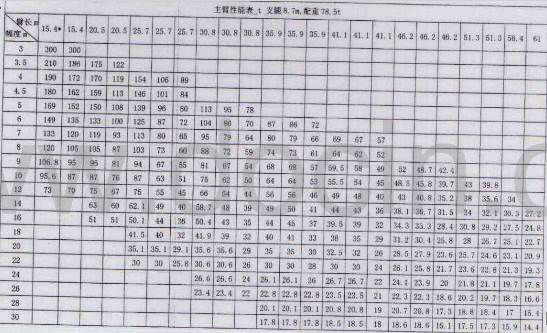 主臂性能表_t 支腿8.7m,配重78.5t
臂长m 15.4* 15.4 20.5 20.5 25.7 25.7 25.7 30.8 30.8 30.8 35.9 35.9 35.9 41.1 41.1 41.1 46.2 46.2 46.2 51.3 51.3 56.4 61
幅度m
3 300 300
3.5 210 186 175 122
4 190 172 170 119 154 106 89
4.5 180 162 159 113 146 101 84
5 169 152 150 108 139 96 80 113 95 78
6 149 135 133 100 125 87 72 104 86 70 87 86 72
7 133 120 119 93 113 80 65 95 79 64 80 79 66 69 67 57
8 120 105 105 87 103 73 60 88 72 59 74 73 61 64 62 52
9 106.8 95 95 81 94 67 55 81 67 54 68 68 57 59.5 58 49 52 48.7 42.4
10 95.6 87 87 76 87 63 51 75 62 50 64 64 53 55.5 54 45 48.5 45.8 39.7 43 39.8
12 73 70 75 67 75 55 45 66 54 44 56 56 46 49 48 40 43 40.8 35.2 38 35.6 34
14 63 60 62.1 49 40 58.7 48 39 49 50 41 44 43 36 38.1 36.7 31.5 34 32.1 30.3 27.2
16 51 51 50.1 44 36 50.4 43 35 44 45 37 39.5 39 32 34.3 33.3 28.4 30.8 29.2 27.5 24.8
18 41.5 40 32 41.9 39 32 40 41 33 36 35 29 31.2 30.4 25.8 28 26.7 25.1 22.7
20 35.1 35.1 29.1 35.6 35.6 29 35 35 30 32.5 32 26 28.5 27.9 23.6 25.7 24.6 23.1 20.9
22 30 30 25.8 30.6 30.6 26 30 30 28 30 30 24 26.1 25.8 21.7 23.6 22.8 21.3 19.3
24 26.6 26.6 24 26.1 26.1 26 26.7 26.7 22 24.1 23.9 20 21.8 21.1 19.7 17.8
26 23.4 23.4 22 22.8 22.8 22.8 23.5 23.5 21 22.3 22.3 18.6 20.2 19.7 18.3 16.6
28 20.1 20.1 20.1 20.8 20.8 19 20.7 20.8 17.3 18.8 18.4 17 15.4
30 17.8 17.8 17.8 18.5 18.5 18 18.6 18.6 16.1 17.5 17.3 15.9 14.4